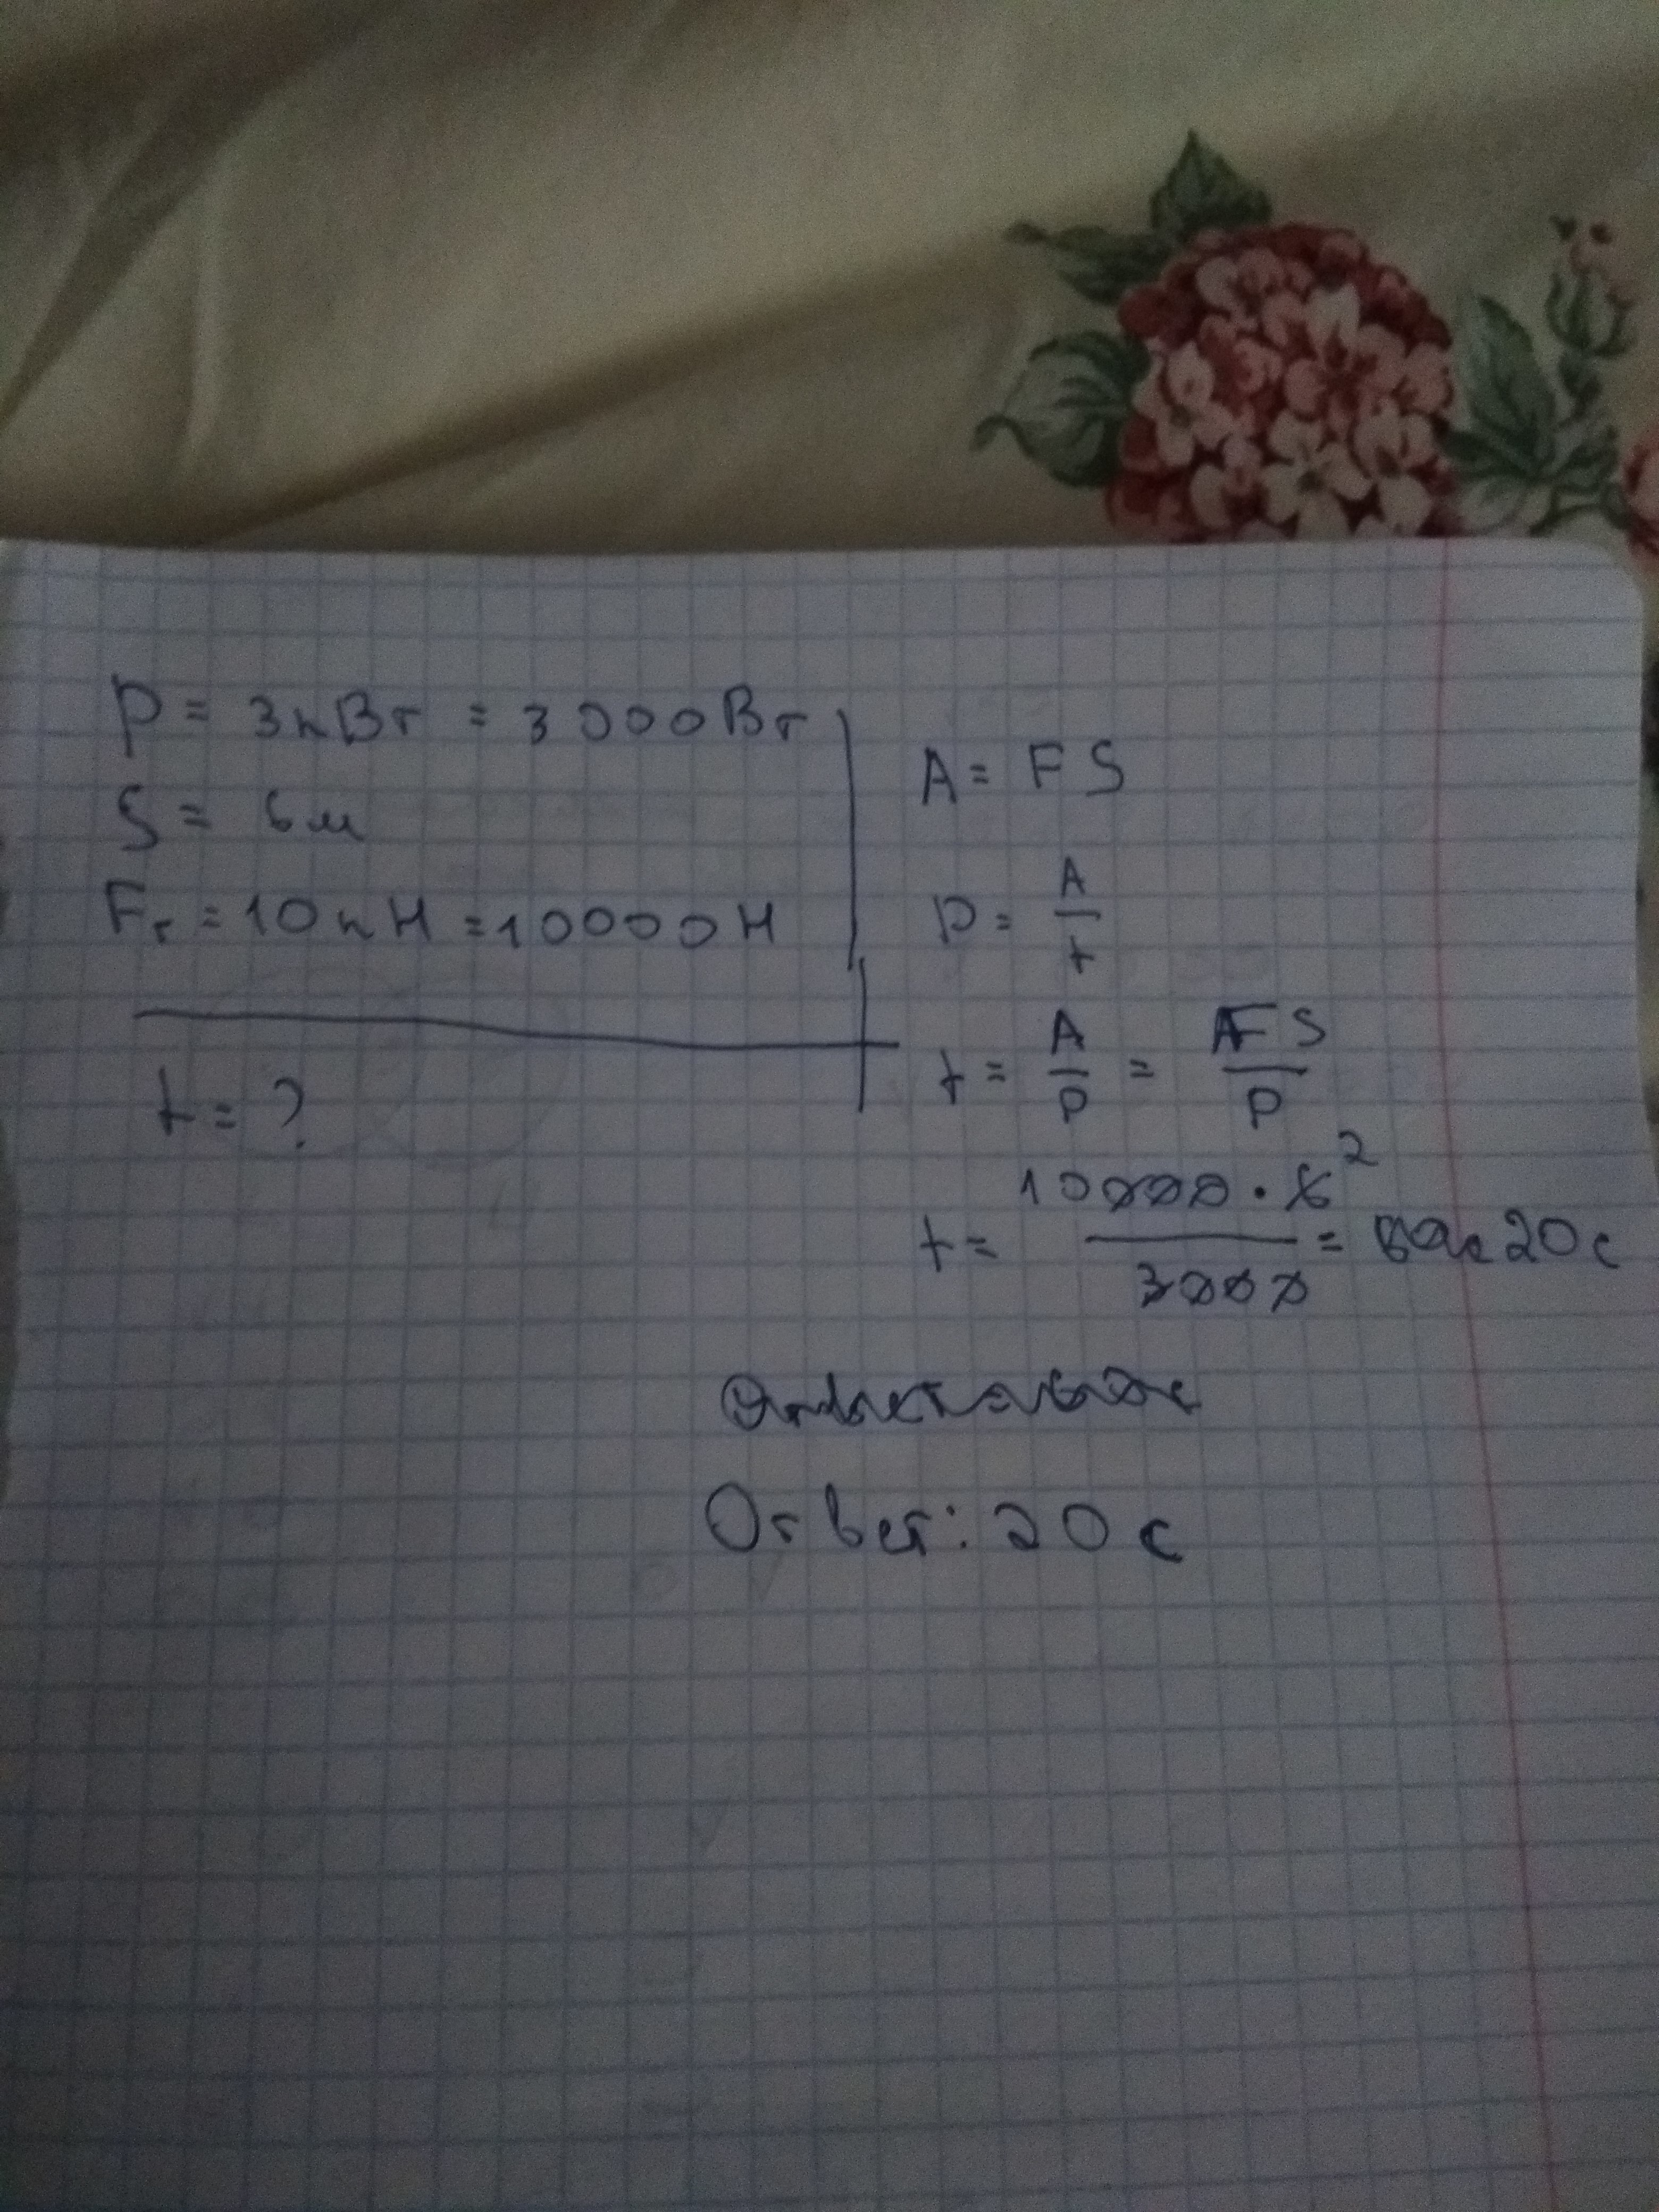 P = 3кВт = 3000Вт
S = 6м
Fт = 10кН = 10000Н
t = ?
A = FS
P = A/t
t = A/P = FS/P
t = 10000 · 6 2 / 3000 = 20с
Ответ: 20 с